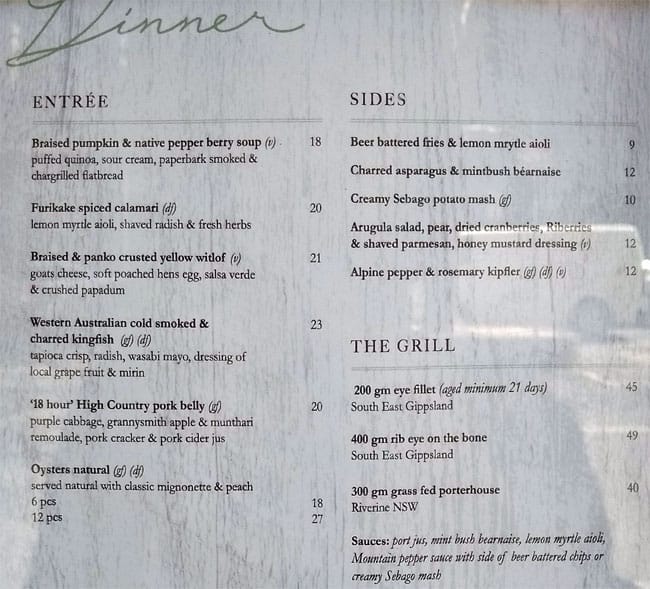 Dinner
ENTRÉE
Braised pumpkin & native pepper berry soup (v) . 18
puffed quinoa, sour cream, paperbark smoked &
chargrilled flatbread
Furikake spiced calamari (df) 20
lemon myrtle aioli, shaved radish & fresh herbs
Braised & panko crusted yellow witlof (v) 21
goats cheese, soft poached hens egg, salsa verde
& crushed papadum
Western Australian cold smoked & 23
charred kingfish (gf) (df)
tapioca crisp, radish, wasabi mayo, dressing of
local grape fruit & mirin
'18 hour' High Country pork belly (gf) 20
purple cabbage, grannysmith apple & munthari
remoulade, pork cracker & pork cider jus
Oysters natural (gf) (df)
served natural with classic mignonette & peach
6 pcs 18
12 pcs 27
SIDES
Beer battered fries & lemon mrytle aioli 9
Charred asparagus & mintbush béarnaise 12
Creamy Sebago potato mash (gf) 10
Arugula salad, pear, dried cranberries, Riberries
& shaved parmesan, honey mustard dressing (v) 12
Alpine pepper & rosemary kipfler (gf) (df) (v) 12
THE GRILL
200 gm eye fillet (aged minimum 21 days) 45
South East Gippsland
400 gm rib eye on the bone 49
South East Gippsland
300 gm grass fed porterhouse 40
Riverine NSW
Sauces: port jus, mint bush bearnaise, lemon myrtle aioli,
Mountain pepper sauce with side of beer battered chips or
creamy Sebago mash